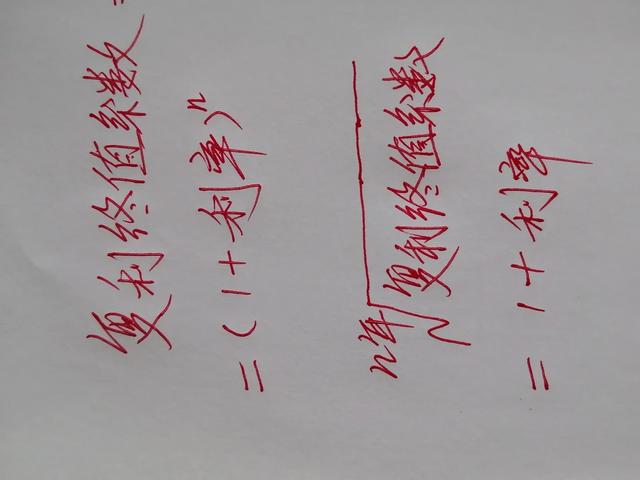 复利终值系数=
=(1+利率)ⁿ
n年√复利终值系数
=1+利率